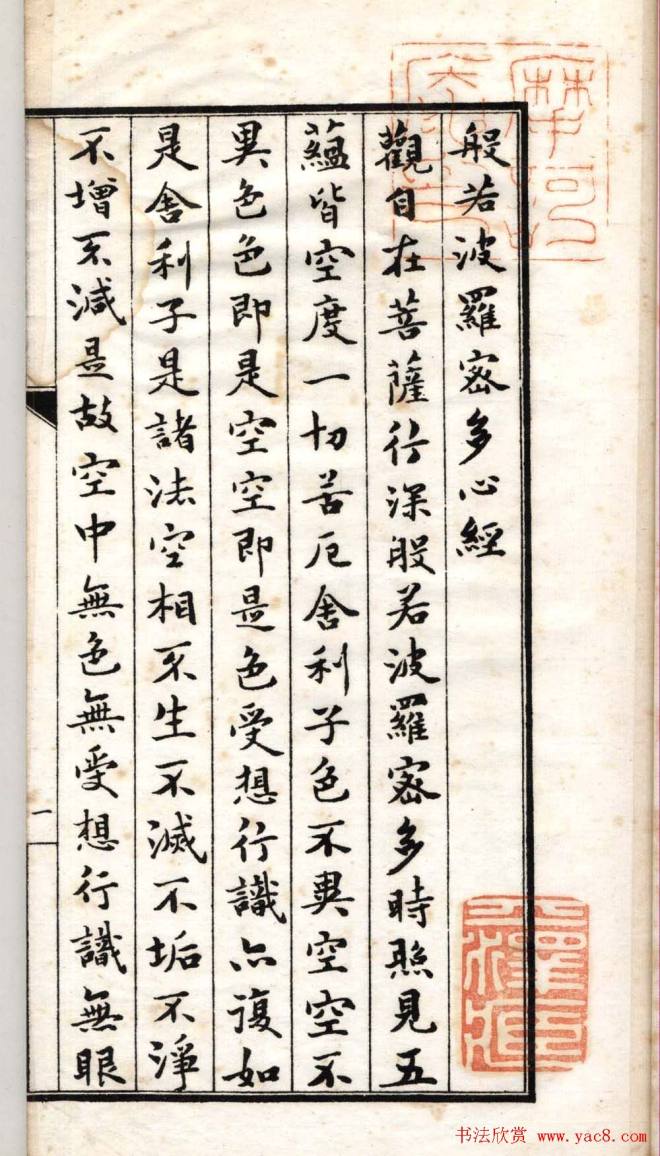 般若波羅密多心經
觀自在菩薩行深般若波羅密多時照見五
蘊皆空度一切苦厄舍利子色不異空空不
異色色即是空空即是色受想行識亦復如
是舍利子是諸法空相不生不滅不垢不淨
不增不減是故空中無色無受想行識無眼
一
书法欣赏 www.yac8.com